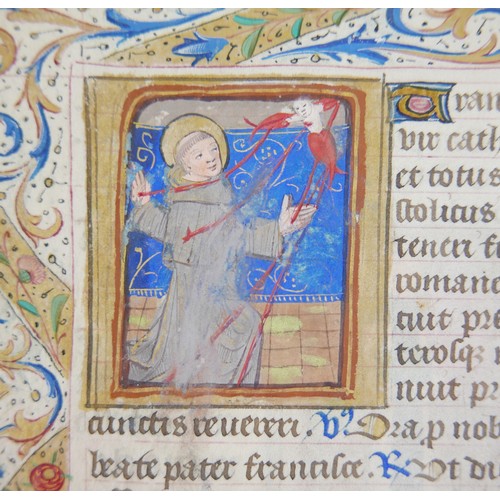 Fran
vir cath
et totus
stolicus
teneri f
romane
cuit pre
terosq
nuit pr
cunctis revereri. V Ora p nob
beate pater francisce. R Ut di